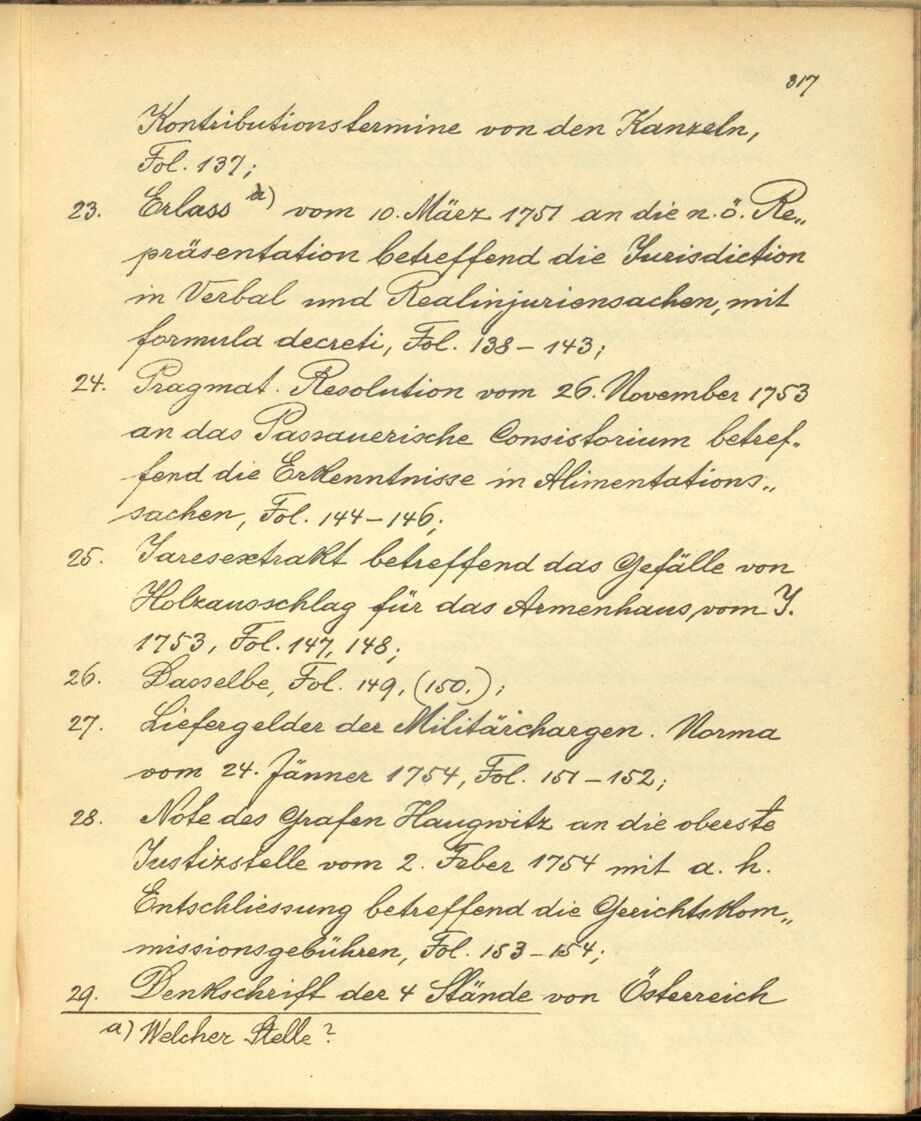 317
Kontributionstermine von den Kanzeln,
Fol. 137;
23. Erlass a) vom 10. März 1751 an die n. ö. Re„
präsentation betreffend die Jurisdiction
in Verbal und Realinjuriensachen, mit
formula decreti, Fol. 138 – 143;
24. Pragmat. Resolution vom 26. November 1753
an das Passauerische Consistorium betref„
fend die Erkenntnisse in Alimentations„
sachen, Fol. 144 – 146;
25. Jaresextrakt betreffend das Gefälle von
Holzausschlag für das Armenhaus vom J.
1753, Fol. 147, 148;
26. Dasselbe, Fol. 149, (150.);
27. Liefergelder der Militärchargen. Norma
vom 24. Jänner 1754, Fol. 151 – 152;
28. Note des Grafen Haugwitz an die oberste
Justizstelle vom 2. Feber 1754 mit a. h.
Entschliessung betreffend die Gerichtskom„
missionsgebühren, Fol. 153 – 154;
29. Denkschrift der 4 Stände von Österreich
a) Welcher Stelle?